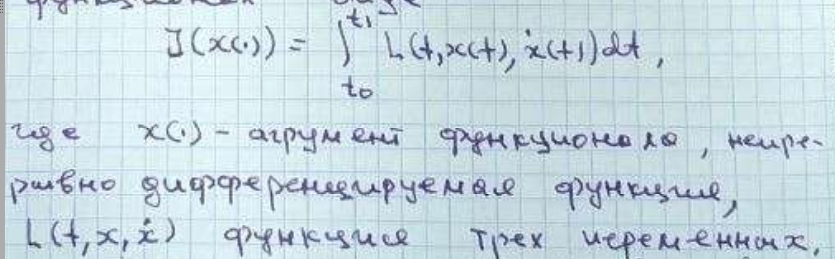 J(x(·)) = ∫_{t₀}^{t₁} L(t, x(t), ẋ(t)) dt,
где x(·) - агрумент функционала, непре-
рывно дифференцируемая функция,
L(t, x, ẋ) функция трех переменных.